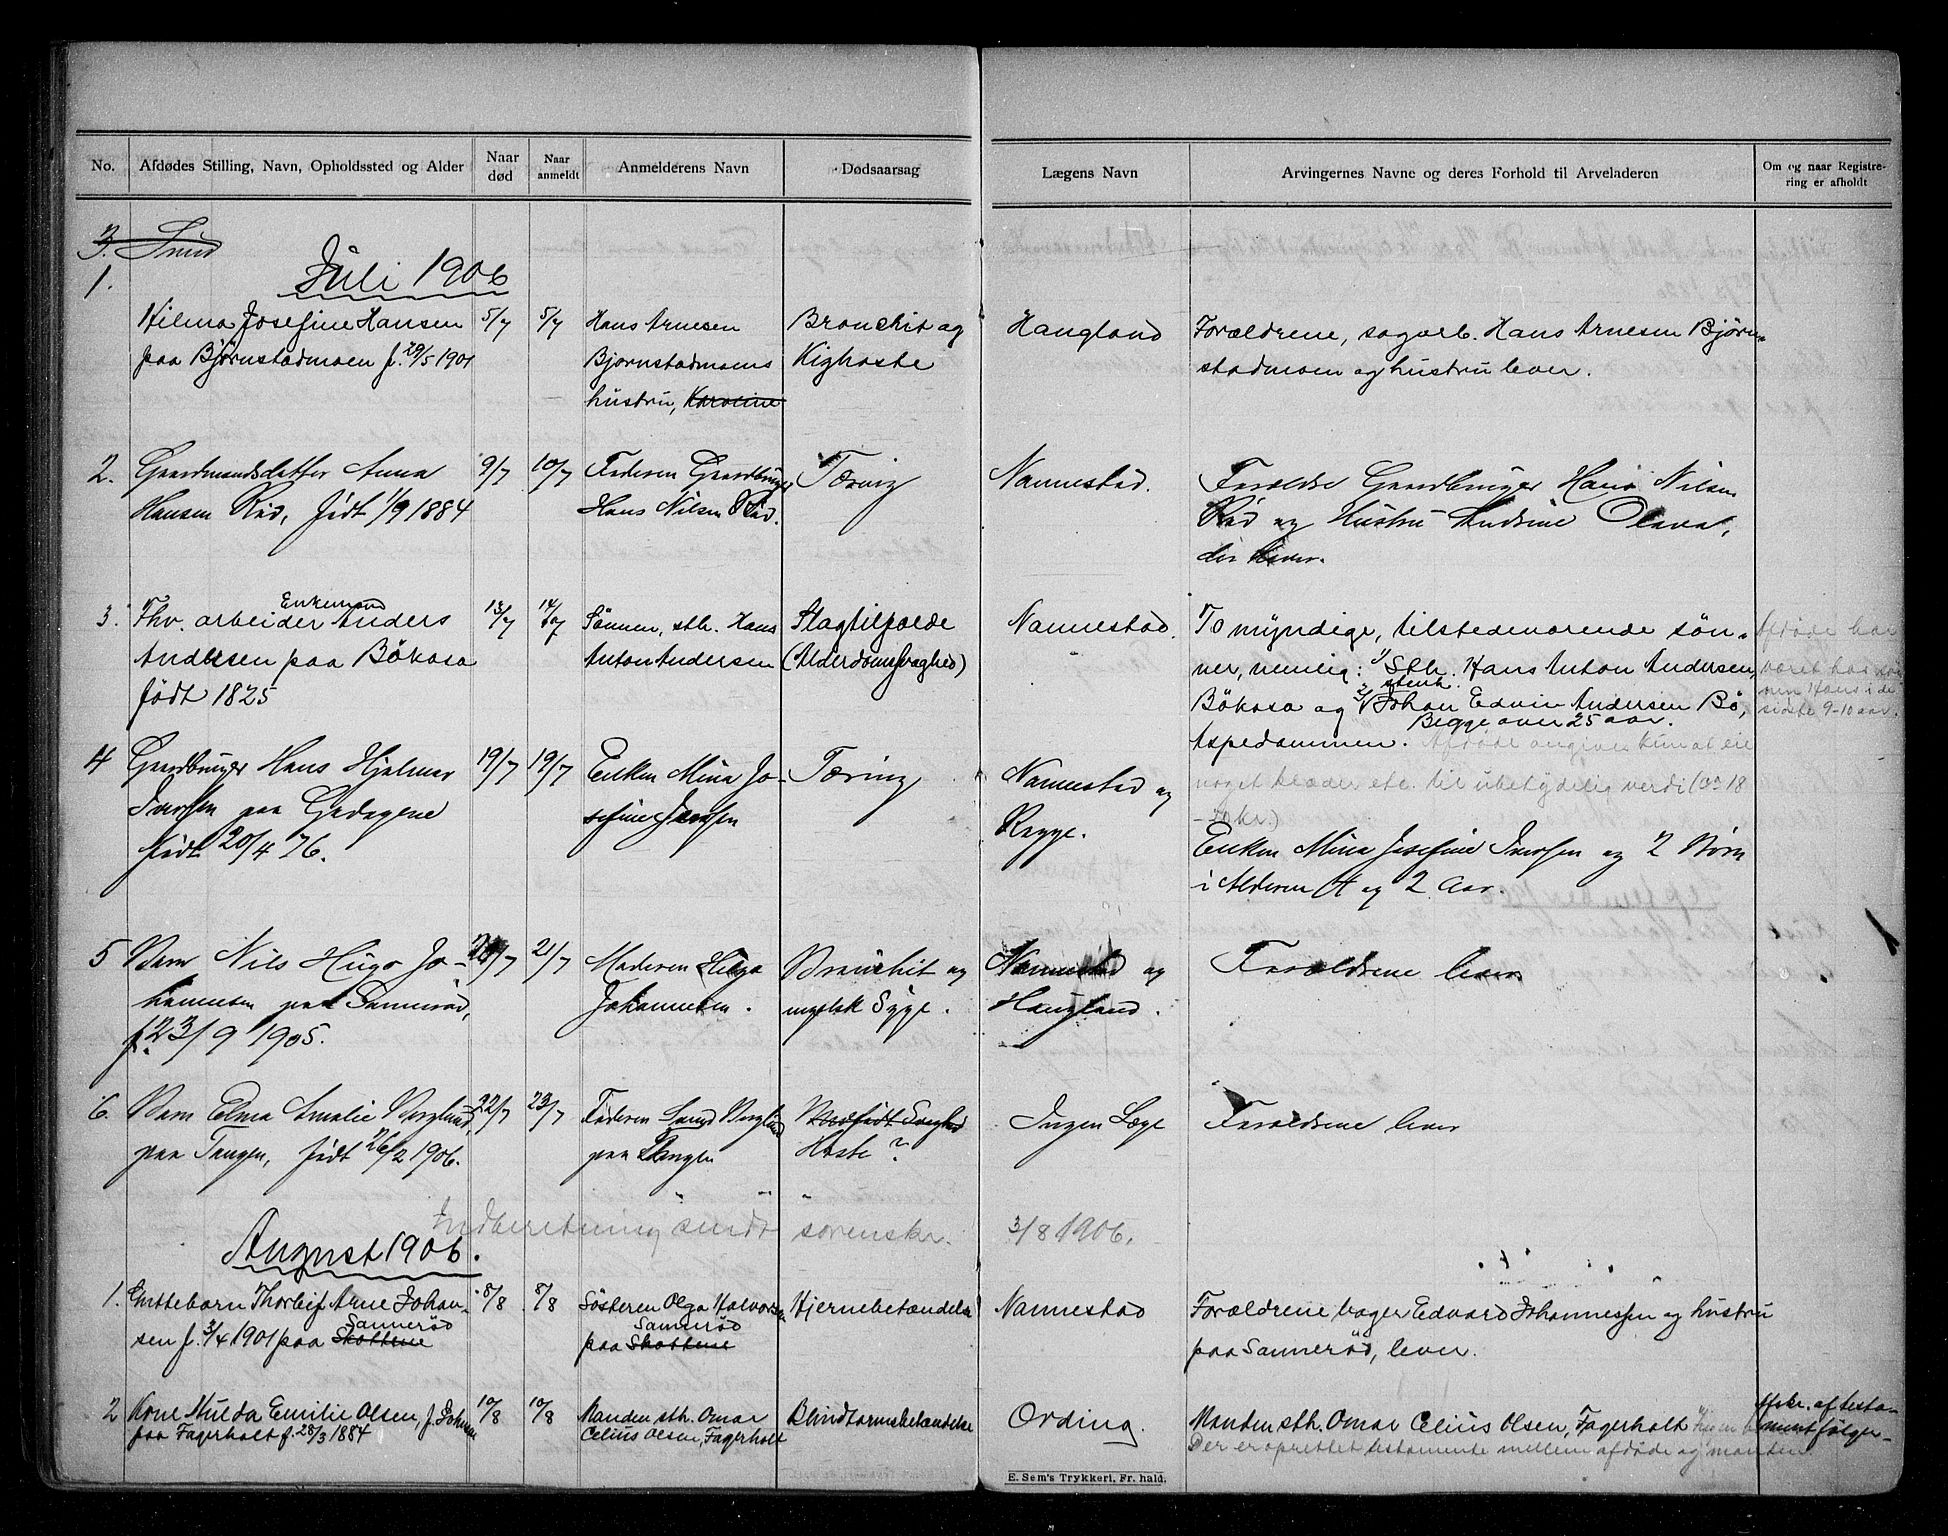 No. Afdødes Stilling, Navn, Opholdssted og Alder Naar død Naar anmeldt Anmelderens Navn Dødsaarsag Lægens Navn Arvingernes Navne og deres Forhold til Arveladeren Om og naar Registrering er afholdt
3.
Juli 1906
1.
Hilma Josefine Hansen 5/7 5/7 Hans Arnesen Bronchit og Haugland Forældrene, sagarb. Hans Arnesen Bjørn-
paa Bjørnstadmoen f. 29/5 1901 Bjørnstadmoens Kighoste stadmoen og hustru lever.
hustru, Karoline
2. Gaardmandsdatter Anna 9/7 10/7 Faderen Gaardbruger Tæring Nannestad. Forældre Gaardbruger Hans Nilsen
Hansen Rød, født 1/9 1884 Hans Nilsen Rød. Rød og Hustru Andrine Olava,
der lever.
3. Fhv. arbeider Enkemand Anders 13/7 14/7 Sønnen, sth. Hans Slagtilfælde Nannestad. To myndige, tilstedeværende søn-
Andersen paa Bökasa Anton Andersen (Alderdomssvaghed) ner, nemlig: 1/ Sth. Hans Anton Andersen,
født 1825 Bökasa og 2/ stenh. Johan Edvin Andersen Bö,
Aspedammen. Begge over 25 aar. Afdøde angives kun at eie
noget klæder etc. til ubetydelig verdi (
Afdøde har
været hos søn
nen Hans i de
sidste 9-10 aar.
4 Gaardbruger Hans Hjalmar 19/7 19/7 Enken Mina Jo- Tæring Nannestad og
Iversen paa Gedagene sefine Iversen Rygge. Enken Mina Josefine Iversen og 2 Børn
født 20/4 76. i Alderen 4 og 2 Aar.
5 Barn Nils Hugo Jo- 20/7 21/7 Moderen Helga Bronchit og Nannestad og Forældrene lever
hannesen paa Sannerød, Johannesen. engelsk Syge. Haugland.
f. 23/9 1905.
6. Barn Elma Amalie Berglund, 22/7 23/7 Faderen Berglund Medfødt Svaghed Ingen Læge Forældrene lever
paa Tangen, født 26/2 1906. paa Tangen Hoste?
Indberetning sendt sorenskr. 3/8 1906.
August 1906.
1. Guttebarn Thorleif Arne Johan- 8/8 8/8 Søsteren Olga Halvorsen Hjernebetændelse Nannestad Forældrene bager Edvard Johannessen og hustru
sen f. 3/4 1901 paa Skottene Sannerød paa Skottene Sannerød paa Sannerød, lever.
2 Kone Hulda Emilie Olsen, f. Johan 10/8 10/8 Manden sth. Omar Blindtarmsbetændelse Ording. Manden sth. Omar Celius Olsen, Fagerholt
paa Fagerholt f. 28/3 1884 Celius Olsen, Fagerholt Der er oprettet testamente mellem afdøde og manden
Afskr. af testa-
ment følger
E. Sem's Trykkeri, Fr. hald.